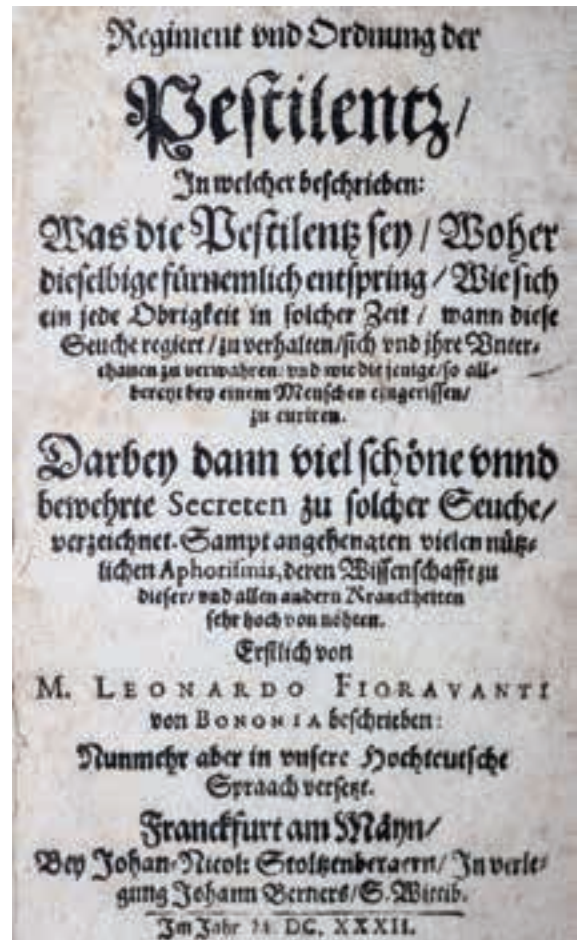 Regiment vnd Ordnung der
Pestilentz/
In welcher beschrieben:
Was die Pestilentz sey / Woher
dieselbige fürnemlich entspring / Wie sich
ein jede Obrigkeit in solcher Zeit / wann diese
Seuche regiert / zu verhalten/sich vnd jhre Vnter-
thanen zu verwahren: vnd wie die jenige/so all-
bereyt bey einem Menschen eingerissen/
zu curiren.
Darbey dann viel schöne vnnd
bewehrte Secreten zu solcher Seuche/
verzeichnet. Sampt angehengten vielen nütz-
lichen Aphorismis, deren Wissenschafft zu
dieser/ vnd allen andern Kranckheiten
sehr hoch von nöhten.
Erstlich von
M. LEONARDO FIORAVANTI
von BONONIA beschrieben:
Nunmehr aber in vnsere Hochteutsche
Spraach versetzt.
Franckfurt am Mäyn/
Bey Johan-Nicol: Stoltzenbergern/ In verle-
gung Johann Berners/ S. Wittib.
Im Jahr M. DC. XXXII.